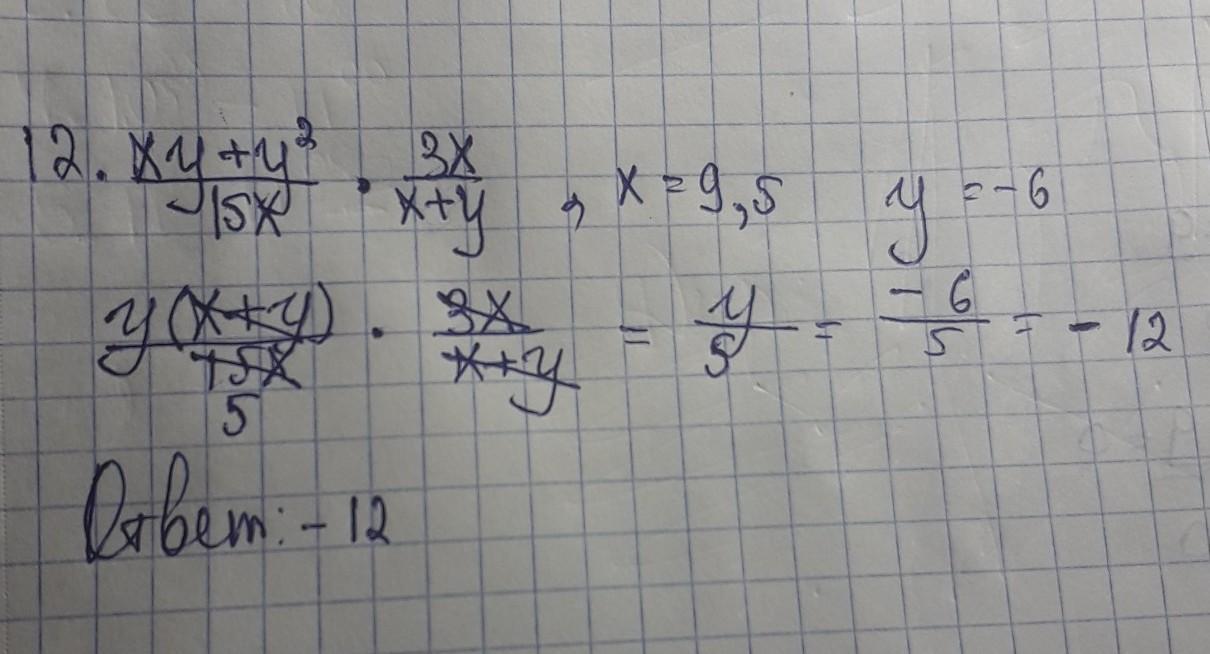 12. xy+y²/15x · 3x/x+y , x = 9,5 y = -6
y(x+y)/15x 5 · 3x/x+y = y/5 = -6/5 = - 12
Ответ: - 12